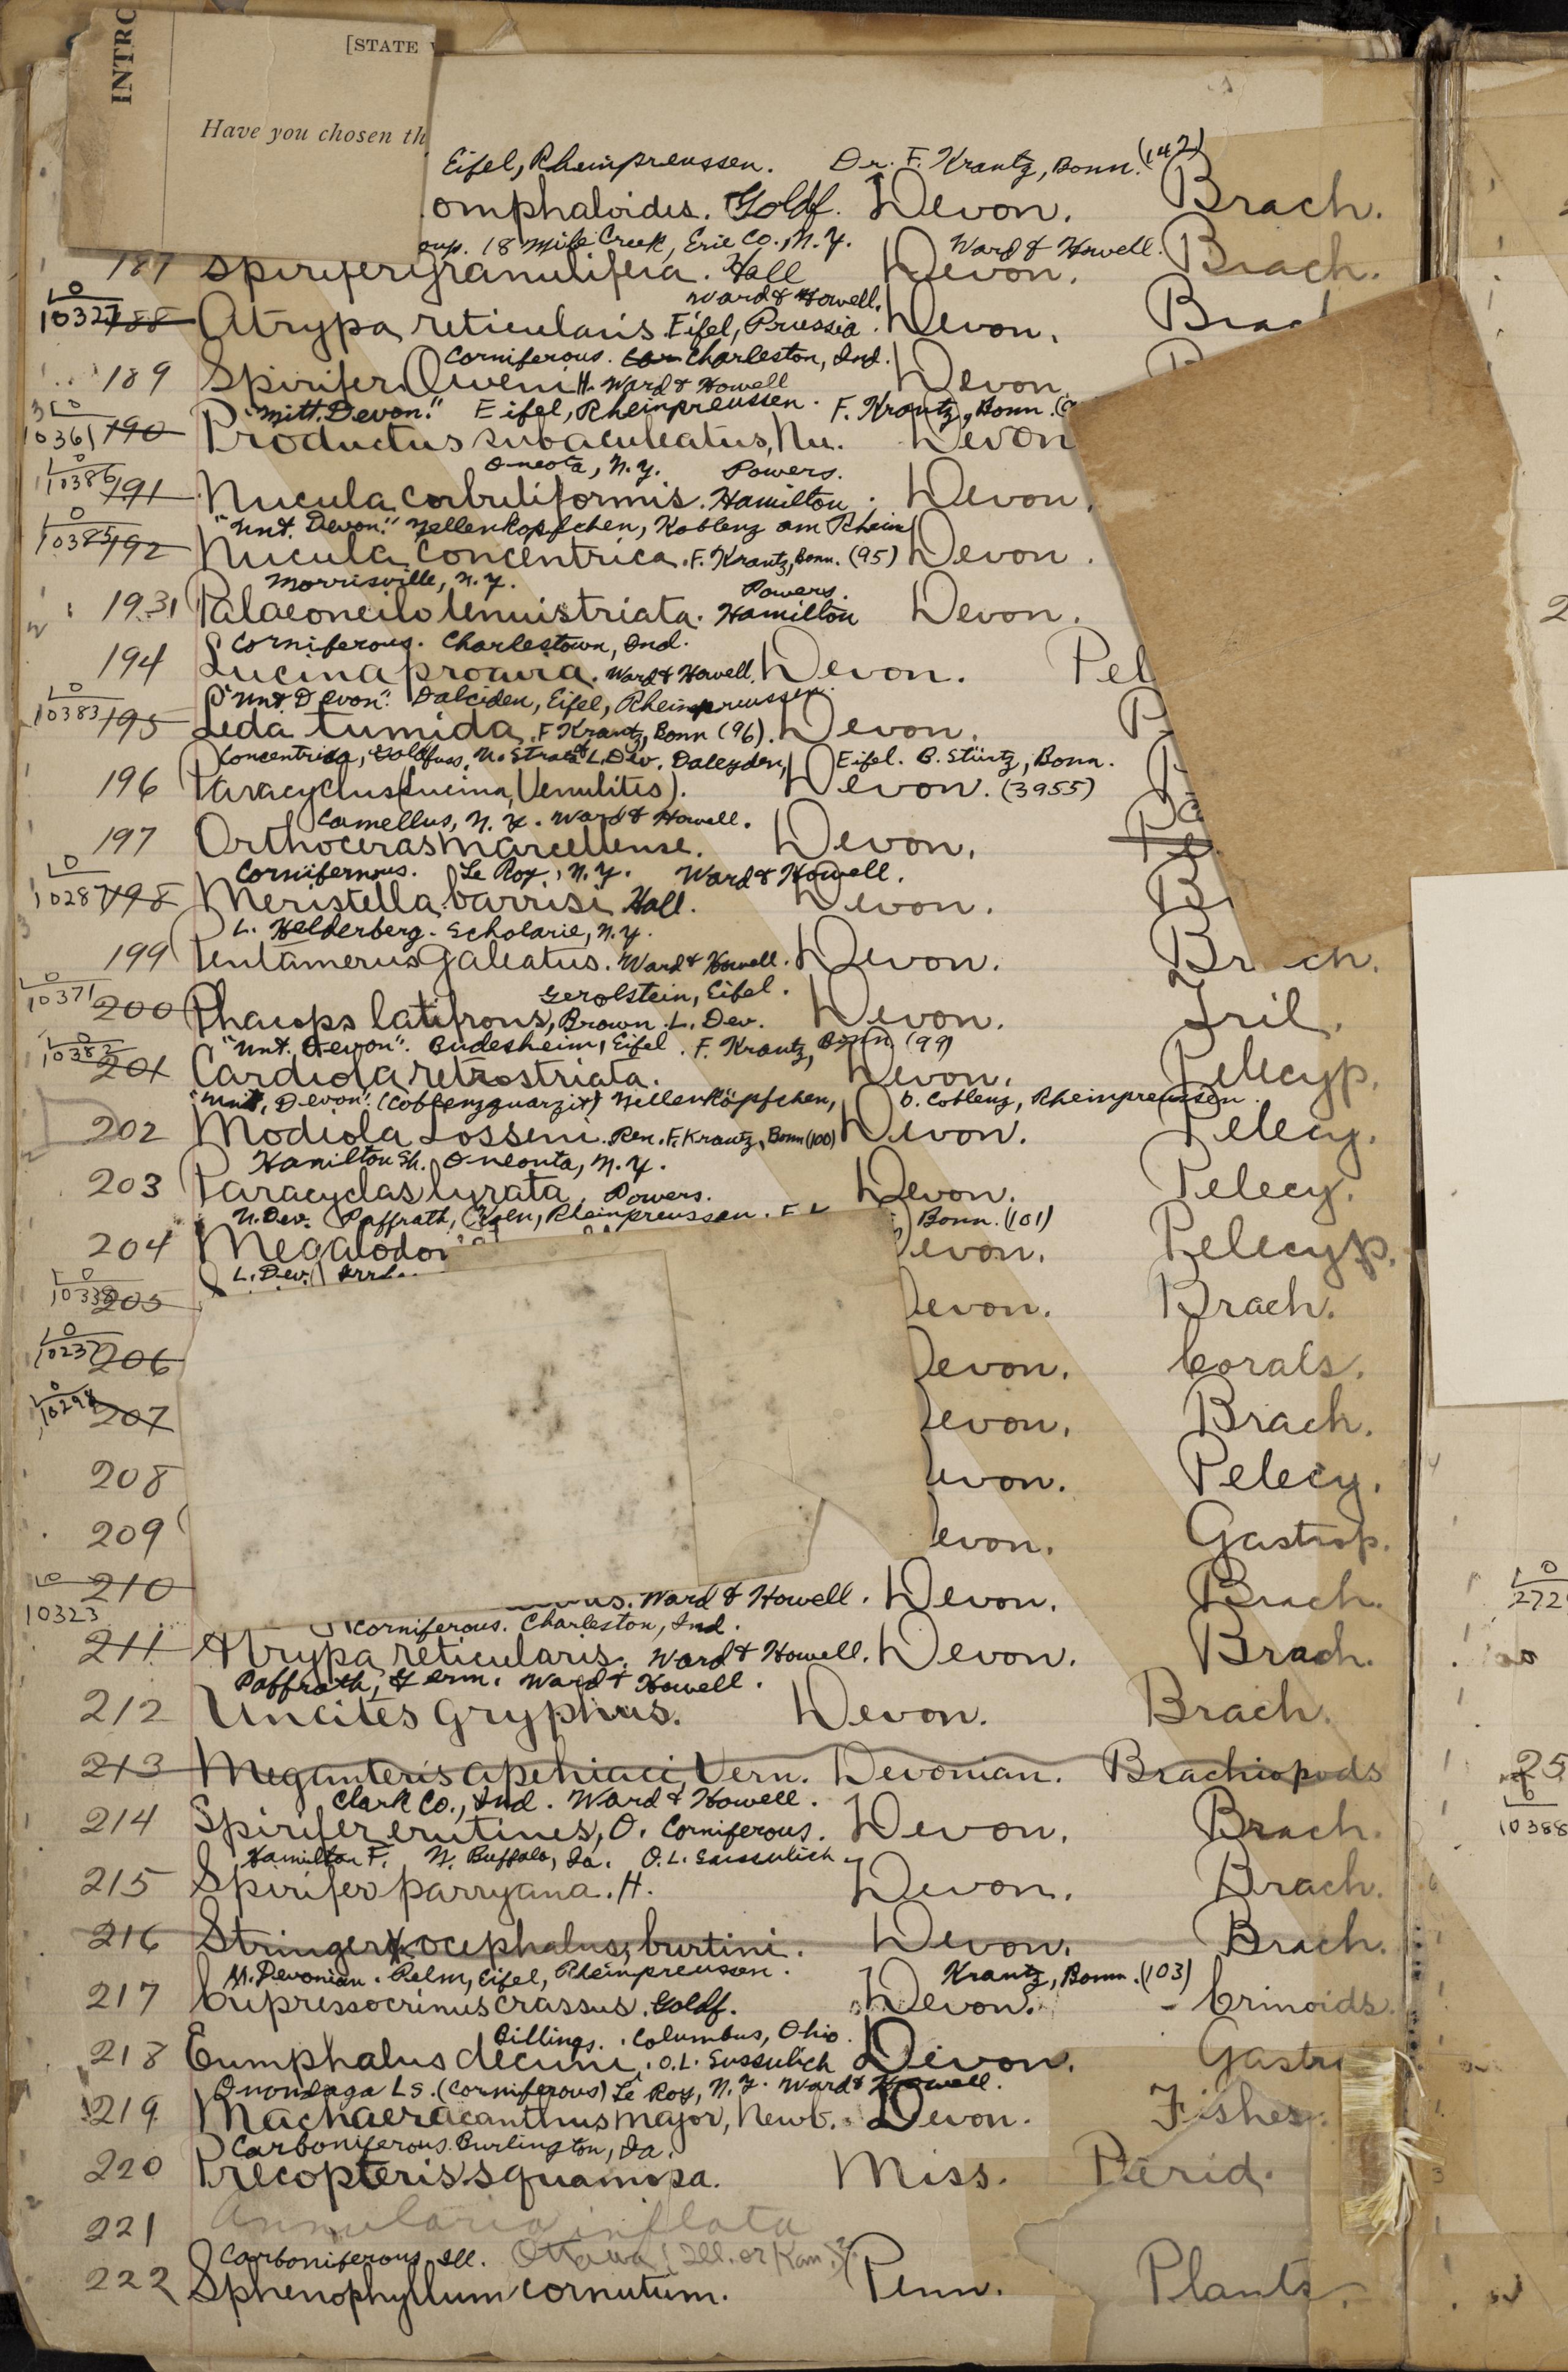 INTRO
[STATE
Have you chosen th
Eifel, Rheinpreussen. Dr. F. Krantz, Bonn. (142)
omphaloides. Goldf. Devon. Brach.
oup. 18 Mile Creek, Erie Co., N.Y. Ward & Howell.
187 Spirifer granulifera. Hall Devon. Brach.
Ward & Howell.
10327 188 Atrypa reticularis. Eifel, Prussia. Devon. Brac
Corniferous. Charleston, Ind.
189 Spirifer Oweni H. Ward & Howell Devon
"Mitt. Devon." Eifel, Rheinpreussen. F. Krantz, Bonn.
10361 190 Productus subaculeatus, Mu. Devon
Oneota, N.Y. Powers.
10386 191 Nucula corbuliformis. Hamilton. Devon.
"Unt. Devon." Nellenkopfchen, Koblenz am Rhein
10385 192 Nucula concentrica. F. Krantz, Bonn. (95) Devon.
Morrisville, N.Y. Powers.
193 Palaeoneilo tenuistriata. Hamilton Devon.
Corniferous. Charlestown, Ind.
194 Lucina proavia. Ward & Howell. Devon. Pel
"Unt Devon". Dalciden, Eifel, Rheinpreussen.
10383 195 Leda tumida. F Krantz, Bonn (96). Devon. P
Concentrica, Goldfuss. L. Dev. Daleyden, Eifel. B. Stürtz, Bonn.
196 Paracyclus (Lucina, Venulites). Devon. (3955)
Camellus, N.Y. Ward & Howell.
197 Orthoceras marcellense. Devon.
Corniferous. Le Roy, N.Y. Ward & Howell.
10287 198 Meristella barrisi Hall. Devon. B
L. Helderberg. Scholarie, N.Y.
199 Pentamerus Galeatus. Ward & Howell. Devon. Br ch.
Gerolstein, Eifel.
10371 200 Phacops latifrons, Brown. L. Dev. Devon. Tril.
"Unt. Devon". Budesheim, Eifel. F. Krantz, Bonn (99)
10382 201 Cardiola retrostriata. Devon. Pelecyp.
"Unt. Devon". (Coblenzquarzit) Nellenköpfchen, b. Coblenz, Rheinpreussen.
202 Modiola Losseni. Ren. F. Krantz, Bonn (100) Devon. Pelecy.
Hamilton Sh. Oneonta, N.Y.
203 Paracyclas lyrata, Powers. Devon. Pelecy.
Paffrath, Koln, Rheinpreussen. Bonn. (101)
204 Megalodon evon. Pelecyp.
L. Dev.
10338 205 evon. Brach.
10237 206 evon. Corals.
10298 207 evon. Brach.
208 evon. Pelecy.
209 evon. Gastrop.
210 us. Ward & Howell. Devon. Brach.
10323 Corniferous. Charleston, Ind.
211 Atrypa reticularis. Ward & Howell. Devon. Brach.
Paffrath, Germ. Ward & Howell.
212 Uncites gryphus. Devon. Brach.
213 Meganteris apehiaci, Vern. Devonian. Brachiopods
Clark Co., Ind. Ward & Howell.
214 Spirifer erutines, O. Corniferous. Devon. Brach.
Hamilton F. N. Buffalo, Ia. O.L.
215 Spirifer parryana. H. Devon. Brach.
216 Stringerocephalus, burtini. Devon. Brach.
M. Devonian. Pelm, Eifel, Rheinpreussen. Krantz, Bonn. (103)
217 Cupressocrinus crassus. Goldf. Devon. Crinoids.
Billings. Columbus, Ohio.
218 Eumphalus decuni. O.L. Devon. Gastr
Onondaga Ls. (Corniferous) Le Roy, N.Y. Ward & Howell.
219 Machaeracanthus major, Newb. Devon. Fishes.
Carboniferous. Burlington, Ia.
220 Precopteris squamosa. Miss. Pterid.
221 Annularia inflata
Carboniferous, Ill. Ottawa (Ill. or Kan.)?
222 Sphenophyllum cornutum. Penn. Plants.
2
272
25
10388